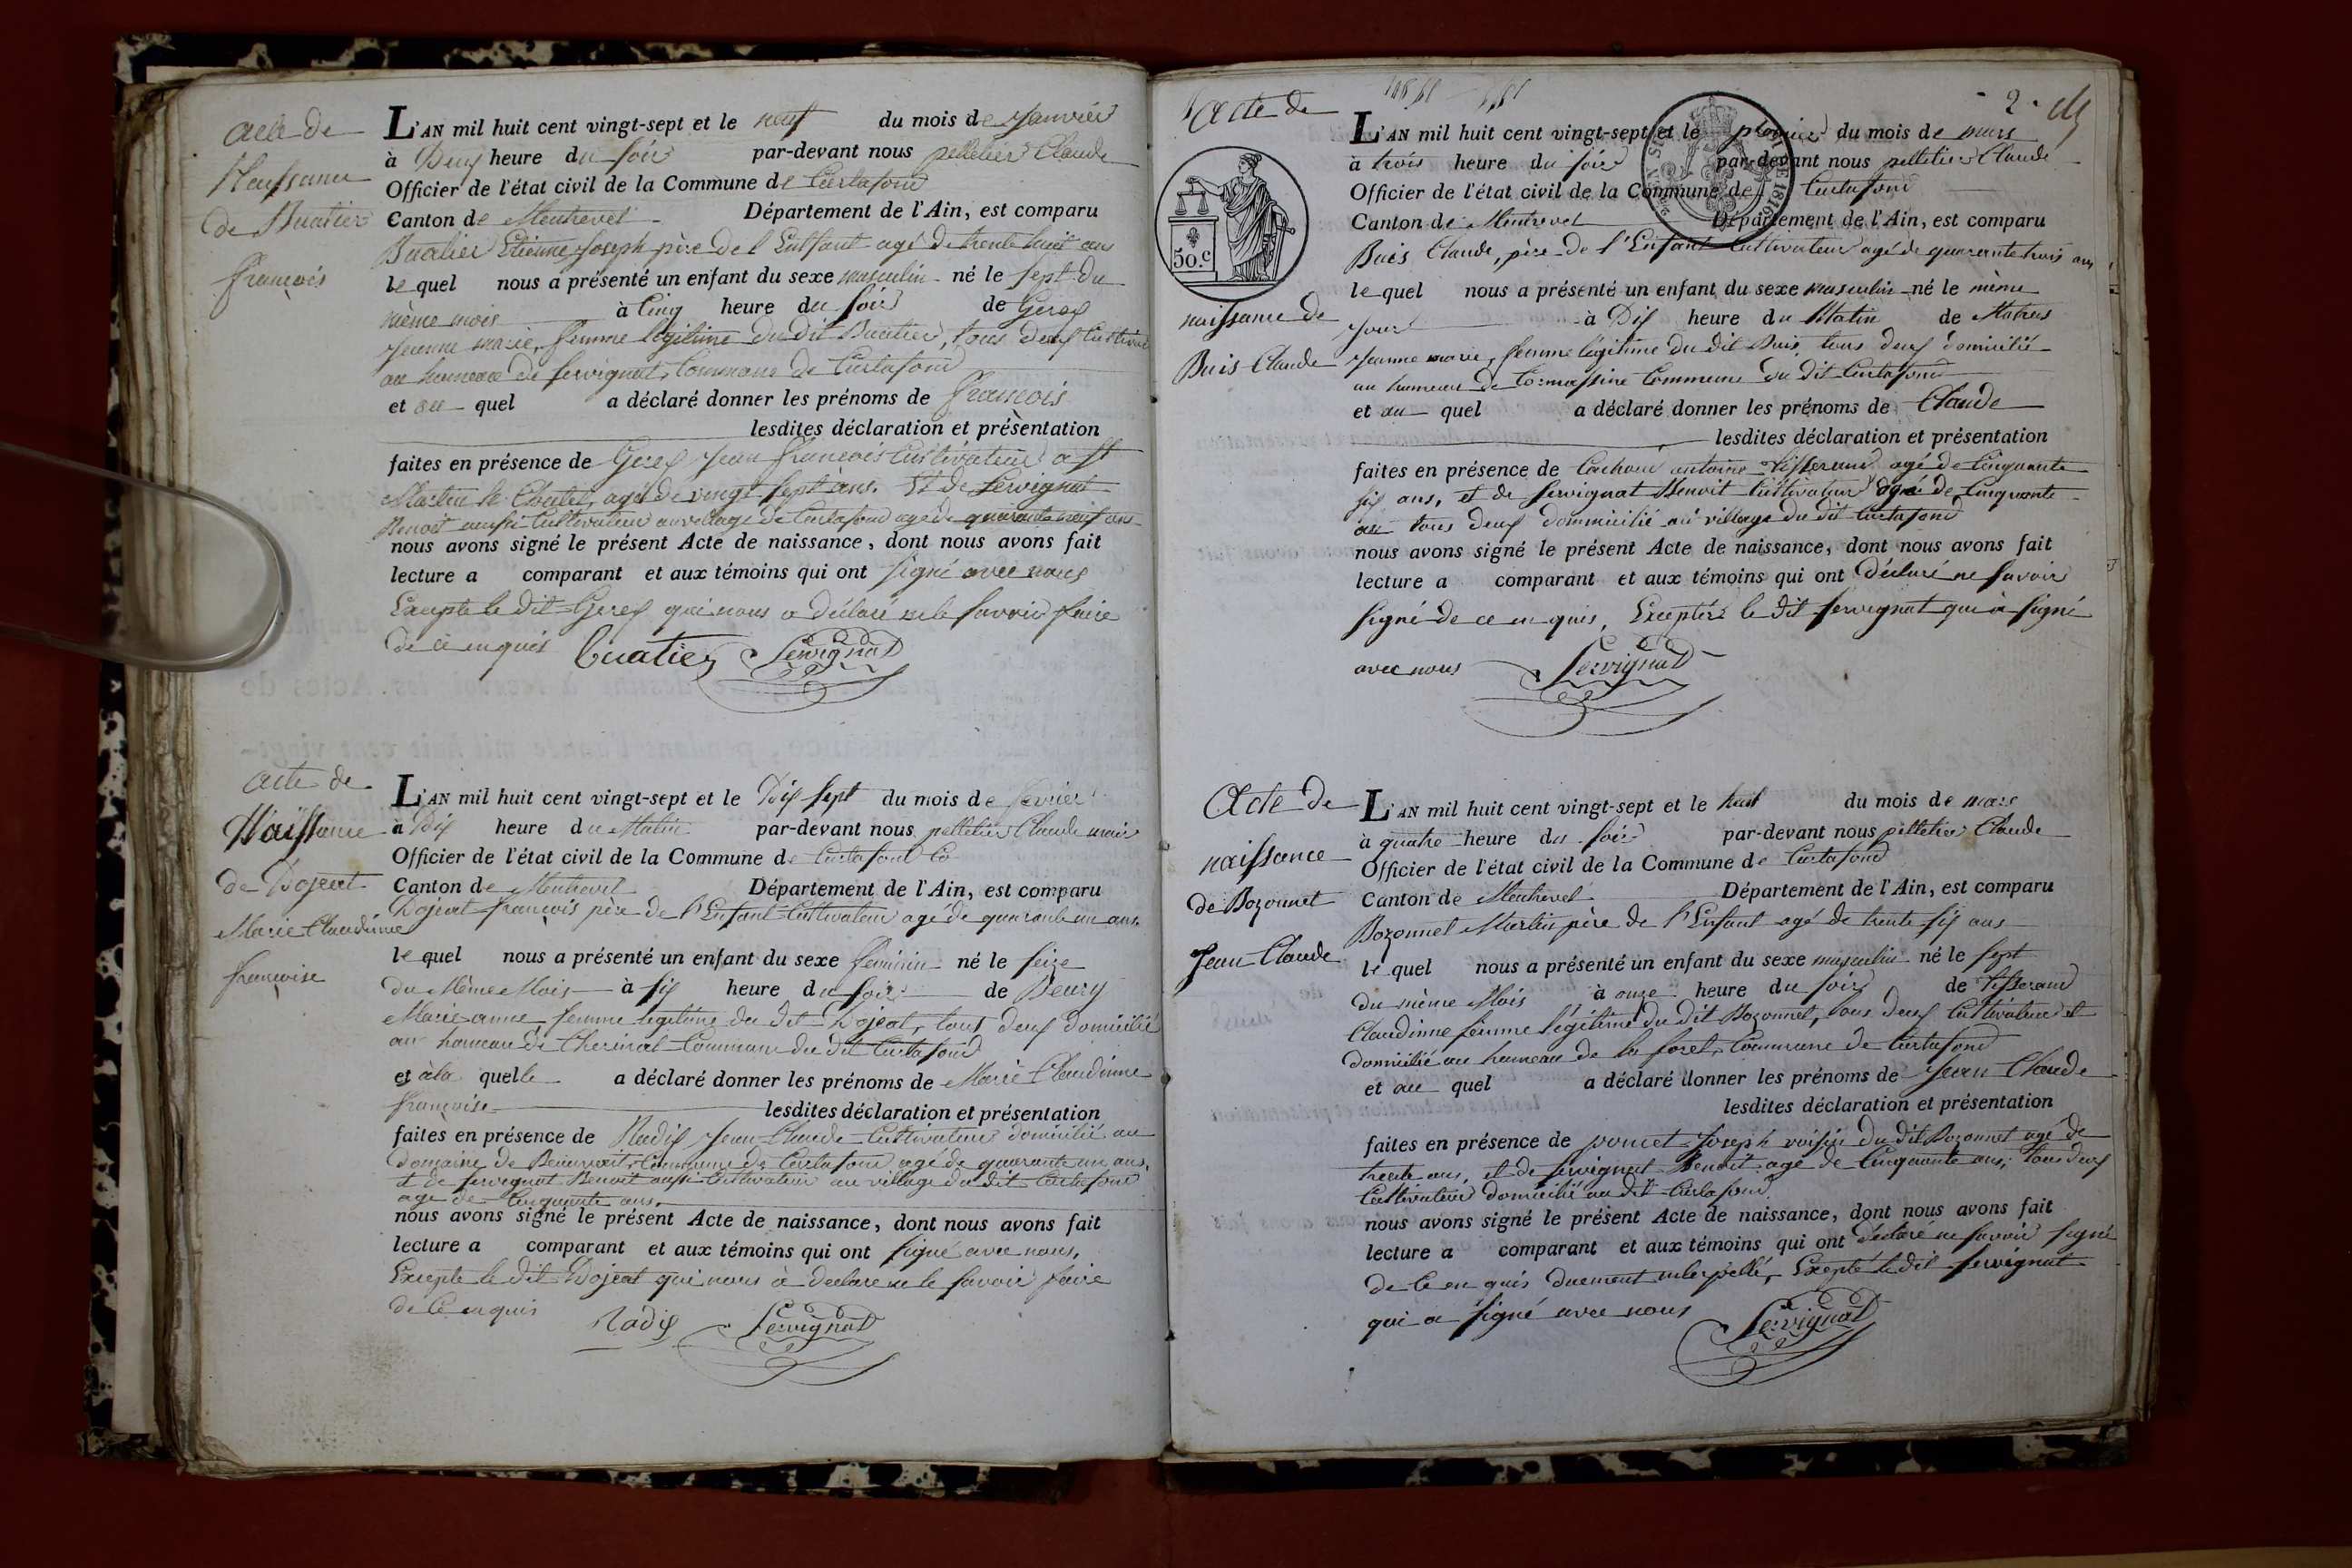 acte de
Naissance
de Buatier
françois
L'AN mil huit cent vingt-sept et le neuf du mois de Janvier
à Deux heure du soir par-devant nous pelletier Claude
Officier de l'état civil de la Commune de Curtafond
Canton de Montrevel Département de l'Ain, est comparu
Buatier Etienne Joseph père de l'Enfant agé de trente huit ans
le quel nous a présenté un enfant du sexe masculin né le sept du
même mois à Cinq heure du soir de
Jeanne marie, femme légitime du dit Buatier, tous deux
au hameau de servignat, Commune de Curtafond
et au quel a déclaré donner les prénoms de François
lesdites déclaration et présentation
faites en présence de Jean françois Cultivateur a St
Martin le Chatel, agé de vingt sept ans. Et de Servignat
Benoit aussi Cultivateur au village de Curtafond agé de quarante neuf ans
nous avons signé le présent Acte de naissance, dont nous avons fait
lecture a comparant et aux témoins qui ont signé avec nous
Excepte le dit qui nous a déclaré ne le savoir faire
de ce enquis Buatier Servignat
acte de
Naissance
de Dojeat
Marie Claudinne
françoise
L'AN mil huit cent vingt-sept et le Dix sept du mois de fevrier
à Dix heure du Matin par-devant nous pelletier Claude maire
Officier de l'état civil de la Commune de Curtafond Co
Canton de Montrevel Département de l'Ain, est comparu
Dojeat françois père de l'Enfant Cultivateur agé de quarante un ans
le quel nous a présenté un enfant du sexe feminin né le seize
du Même Mois à six heure du soir de
Marie anne femme legitime du dit Dojeat, tous deux domicilié
au hameau de Commune du dit Curtafond
et à la quelle a déclaré donner les prénoms de Marie Claudinne
françoise lesdites déclaration et présentation
faites en présence de Nadix Jean Claude Cultivateur domicilié au
domaine de Commune de Curtafond agé de quarante un ans,
et de servignat Benoit aussi Cultivateur au village du dit Curtafond
agé de Cinquante ans.
nous avons signé le présent Acte de naissance, dont nous avons fait
lecture a comparant et aux témoins qui ont signé avec nous,
Excepte le dit Dojeat qui nous à declare ne le savoir faire
de ce enquis Nadix Servignat
2
Acte de
50.c
naissance de
Buis Claude
L'AN mil huit cent vingt-sept et le premier du mois de mars
à trois heure du soir par-devant nous pelletier Claude
Officier de l'état civil de la Commune de Curtafond
Canton de Montrevel Département de l'Ain, est comparu
Buis Claude, père de l'Enfant Cultivateur agé de quarante trois ans
le quel nous a présenté un enfant du sexe masculin né le même
Jour à Dix heure du Matin de
Jeanne marie, femme légitime du dit Buis, tous deux domicilié
au hameau de Commune du dit Curtafond
et au quel a déclaré donner les prénoms de Claude
lesdites déclaration et présentation
faites en présence de antoine tisserand agé de Cinquante
six ans, et de servignat Benoit Cultivateur agé de Cinquante
an tous deux dommicilié au village du dit Curtafond
nous avons signé le présent Acte de naissance, dont nous avons fait
lecture a comparant et aux témoins qui ont Déclaré ne savoir
signé de ce enquis, Exceptéz le dit servignat qui à signé
avec nous Servignat
Acte de
naissance
de Bozonnet
Jean Claude
L'AN mil huit cent vingt-sept et le huit du mois de mars
à quatre heure du soir par-devant nous pelletier Claude
Officier de l'état civil de la Commune de Curtafond
Canton de Montrevel Département de l'Ain, est comparu
Bozonnet Martin père de l'Enfant agé de trente six ans
le quel nous a présenté un enfant du sexe masculin né le sept
du même Mois à onze heure du soir de tisserand
Claudinne femme légitime du dit Bozonnet, tous deux Cultivateur et
domicilié au hameau de la foret, Commune de Curtafond
et au quel a déclaré donner les prénoms de Jean Claude
lesdites déclaration et présentation
faites en présence de poncet Joseph voisin du dit Bozonnet agé de
trente ans, et de servignat Benoit agé de Cinquante ans, tous deux
Cultivateur domicilié au dit Curtafond.
nous avons signé le présent Acte de naissance, dont nous avons fait
lecture a comparant et aux témoins qui ont Déclaré ne savoir signé
de Ce en quis duement interpellé, Excepté le dit servignat
qui a signé avec nous Servignat